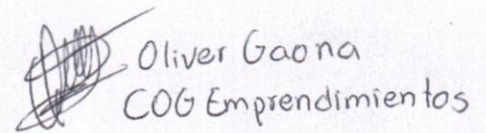 Oliver Gaona
COG Emprendimientos